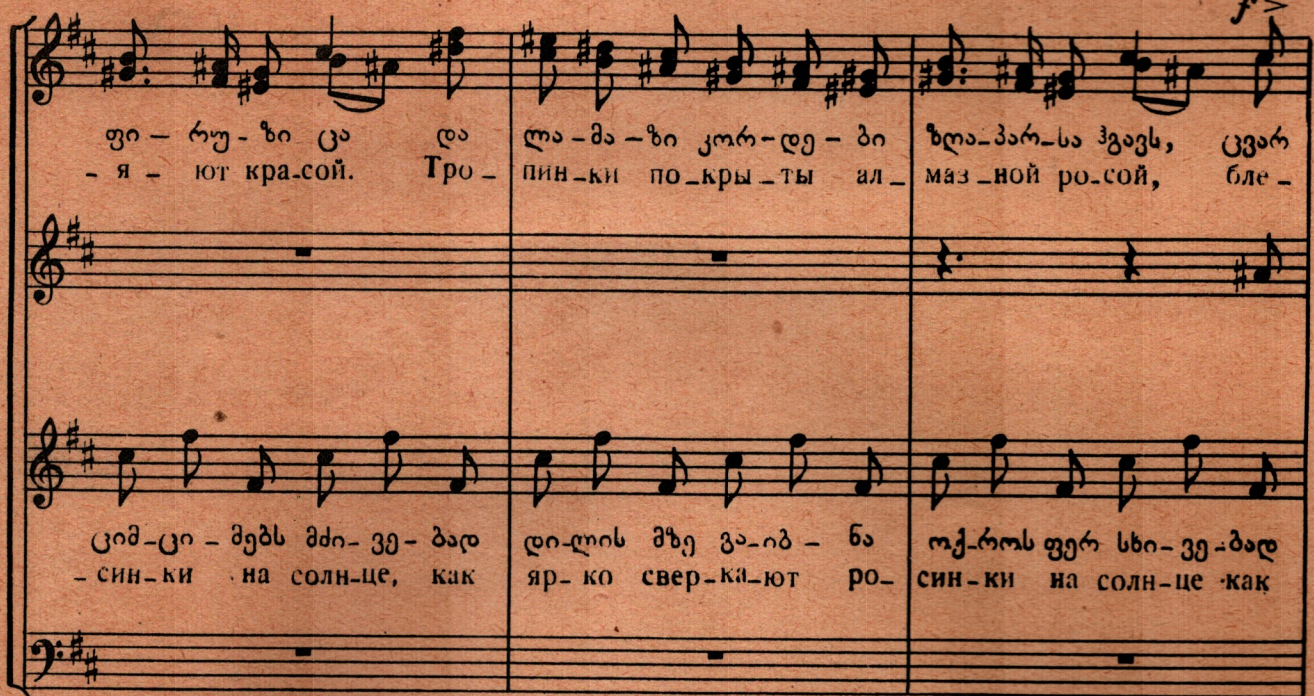 f >
ფი – რუ – ზი ცა და ლა – მა – ზი კორ – დე – ბი ზღა – პარ – სა ჰგავს, ცვარ
– я – ют кра – сой. Тро – пин – ки по – кры – ты ал – маз – ной ро – сой, бле –
ციმ – ცი – მებს მძი – ვე – ბად დი – ლის მზე გა – იბ – ნა ოქ – როს ფერ სხი – ვე – ბად
– син – ки на солн – це, как яр – ко свер – ка – ют ро – син – ки на солн – це как